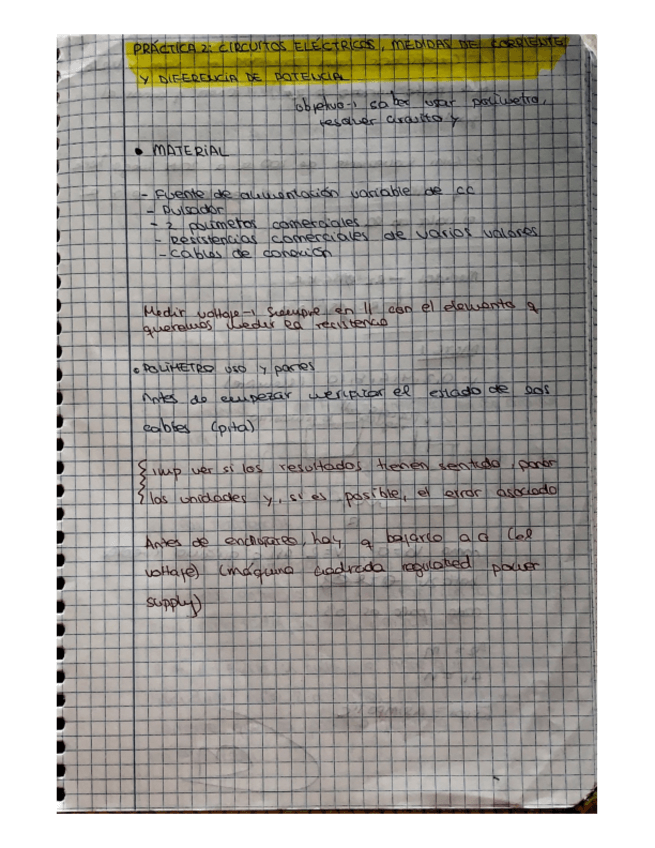 PRÁCTICA 2: CIRCUITOS ELÉCTRICOS, MEDIDAS DE CORRIENTE
Y DIFERENCIA DE POTENCIAL
objetivo → saber usar polímetro,
resolver circuito y
• MATERIAL
- Fuente de alimentación variable de cc
- Pulsador
- 2 polímetros comerciales
- Resistencias comerciales de varios valores
- Cables de conexión
Medir voltaje → siempre en || con el elemento q
queremos medir la resistencia
• POLÍMETRO uso y partes
Antes de empezar verificar el estado de los
cables (pita)
imp ver si los resultados tienen sentido, poner
las unidades y, si es posible, el error asociado
Antes de enchufarlo, hay q bajarlo a 0 (el
voltaje) (máquina cuadrada regulated power
supply)